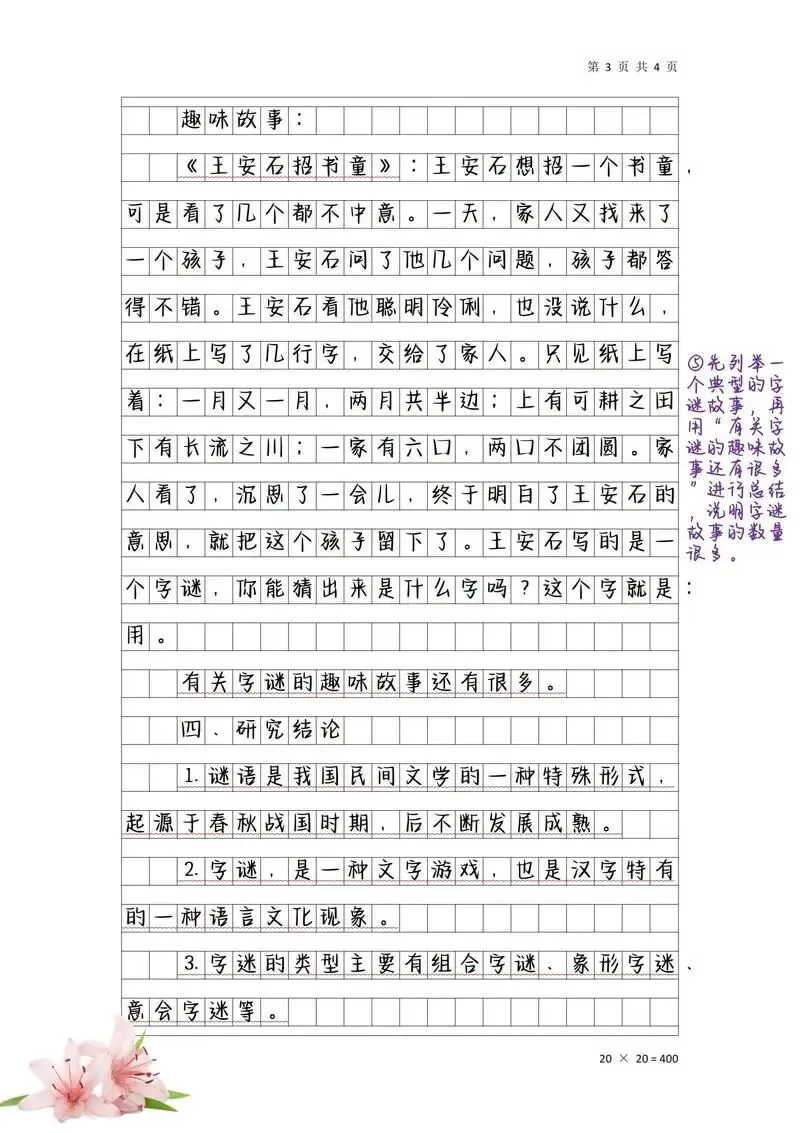 第 3 页 共 4 页
趣味故事：
《王安石招书童》：王安石想招一个书童，
可是看了几个都不中意。一天，家人又找来了
一个孩子，王安石问了他几个问题，孩子都答
得不错。王安石看他聪明伶俐，也没说什么，
在纸上写了几行字，交给了家人。只见纸上写
着：一月又一月，两月共半边；上有可耕之田
下有长流之川；一家有六口，两口不团圆。家
人看了，沉思了一会儿，终于明白了王安石的
意思，就把这个孩子留下了。王安石写的是一
个字谜，你能猜出来是什么字吗？这个字就是：
用。
有关字谜的趣味故事还有很多。
四、研究结论
1. 谜语是我国民间文学的一种特殊形式，
起源于春秋战国时期，后不断发展成熟。
2. 字谜，是一种文字游戏，也是汉字特有
的一种语言文化现象。
3. 字迷的类型主要有组合字谜、象形字迷、
意会字迷等。
⑤先列举一
个典型的字
谜故事，再
用“有关字
谜的趣味故
事还有很多
”进行总结
，说明字谜
故事的数量
很多。
20 × 20 = 400